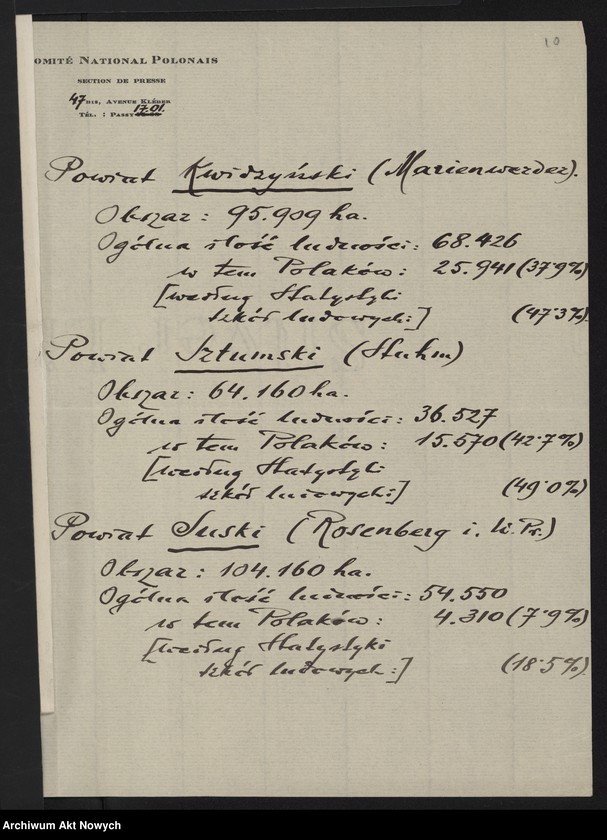 10
OMITÉ NATIONAL POLONAIS
SECTION DE PRESSE
47 BIS, AVENUE KLÉBER
TÉL. : PASSY 17.01.
Powiat Kwidzyński (Marienwerder).
Obszar: 95.909 ha.
Ogólna ilość ludności: 68.426
w tem Polaków: 25.941 (37·9%)
[według Statystyki
szkół ludowych:] (47·3%)
Powiat Sztumski (Stuhm)
Obszar: 64.160 ha.
Ogólna ilość ludności: 36.527
w tem Polaków: 15.570 (42·7%)
[według Statystyki
szkół ludowych:] (49·0%)
Powiat Suski (Rosenberg i. W. Pr.)
Obszar: 104.160 ha.
Ogólna ilość ludności: 54.550
w tem Polaków: 4.310 (7·9%)
[według Statystyki
szkół ludowych:] (18·5%)
Archiwum Akt Nowych